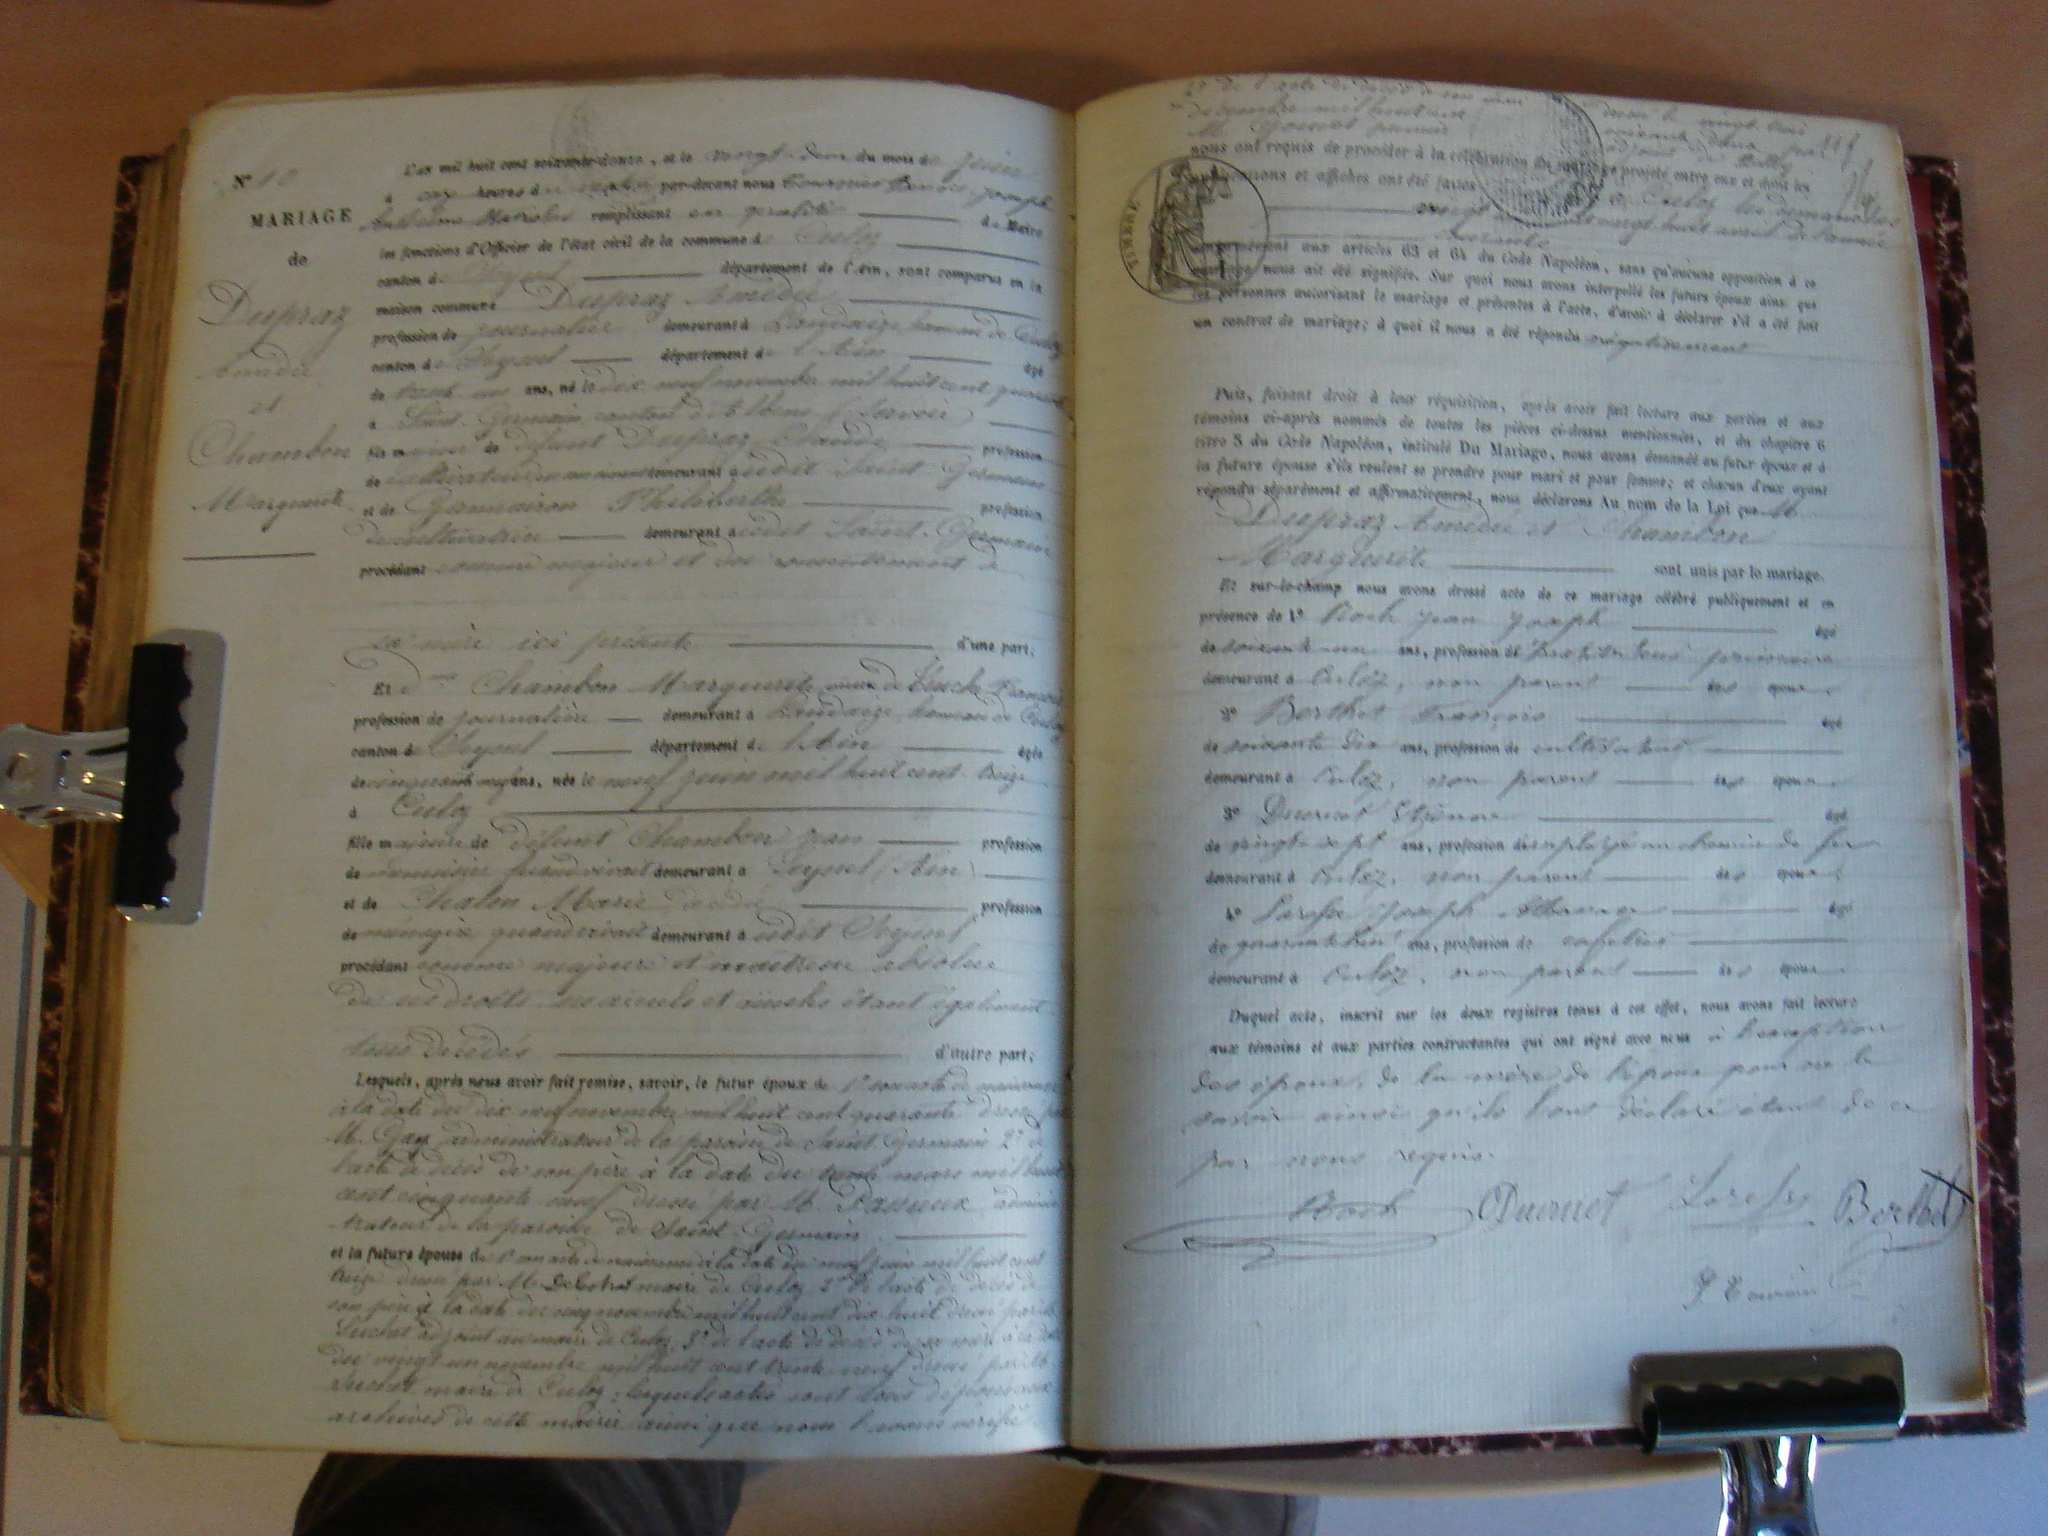 N° 10
MARIAGE
de
Dupraz
Amédée
et
Chambon
Marguerite
L'an mil huit cent soixante-douze, et le vingt-deux du mois de juin
à heures du matin par-devant nous Joseph
Anthelme remplissant en qualité de Maire
les fonctions d'Officier de l'état civil de la commune de Culoz
canton de Seyssel département de l'Ain, sont comparus en la
maison commune Dupraz Amédée
profession de journalier demeurant à Landaize hameau de Culoz
canton de Seyssel département de l'Ain âgé
de trente un ans, né le dix neuf novembre mil huit cent quarante
à Saint Germain canton d'Albens (Savoie)
fils majeur de défunt Dupraz Claude profession
de cultivateur de son vivant demeurant audit Saint-Germain
et de Philiberthe profession
de cultivatrice demeurant audit Saint-Germain
procédant comme majeur et du consentement de
sa mère ici présente d'une part,
Et d Chambon Marguerite veuve de François
profession de journalière demeurant à Landaize hameau de Culoz
canton de Seyssel département de l'Ain âgée
de cinquante neuf ans, née le neuf juin mil huit cent treize
à Culoz
fille majeure de défunt Chambon Jean profession
de quand vivait demeurant à Seyssel (Ain)
et de Marie décédée profession
de ménagère quand vivait demeurant à audit Seyssel
procédant comme majeure et maitresse absolue
de ses droits ses aieuls et aieules étant également
tous décédés d'autre part;
Lesquels, après nous avoir fait remise, savoir, le futur époux de 1° son acte de naissance
à la date du dix neuf novembre mil huit cent quarante dressé par
M. Gay administrateur de la paroisse de Saint Germain 2° de
l'acte de décès de son père à la date du trente mars mil huit
cent cinquante neuf dressé par M. adminis
trateur de la paroisse de Saint Germain
et la future épouse de 1° son acte de naissance à la date du neuf juin mil huit cent
treize dressé par M. maire de Culoz 2° de l'acte de décès de
son père à la date du cinq novembre mil huit cent dix huit dressé par M.
adjoint au maire de Culoz 3° de l'acte de décès de sa mère à la date
du vingt un novembre mil huit cent trente neuf dressé par M.
maire de Culoz, lesquels actes sont tous déposés aux
archives de cette mairie ainsi que nous l'avons vérifié
4° de l'acte de décès de son mari dressé le vingt trois
décembre mil huit cent soixante deux par
M. adjoint de
nous ont requis de procéder à la célébration du mariage projeté entre eux et dont les
publications et affiches ont été faites à Culoz les dimanches
vingt un vingt huit avril de l'année
courante
TIMBRE
conformément aux articles 63 et 64 du Code Napoléon, sans qu'aucune opposition à ce
mariage nous ait été signifiée. Sur quoi nous avons interpellé les futurs époux ainsi que
les personnes autorisant le mariage et présentes à l'acte, d'avoir à déclarer s'il a été fait
un contrat de mariage; à quoi il nous a été répondu négativement
Puis, faisant droit à leur réquisition, après avoir fait lecture aux parties et aux
témoins ci-après nommés de toutes les pièces ci-dessus mentionnées, et du chapitre 6
titre 5 du Code Napoléon, intitulé Du Mariage, nous avons demandé au futur époux et à
la future épouse s'ils veulent se prendre pour mari et pour femme; et chacun d'eux ayant
répondu séparément et affirmativement, nous déclarons Au nom de la Loi que M
Dupraz Amédée et Chambon
Marguerite sont unis par le mariage.
Et sur-le-champ nous avons dressé acte de ce mariage célébré publiquement et en
présence de 1° Roch Jean Joseph âgé
de soixante un ans, profession de primaire
demeurant à Culoz, non parent des époux
2° Berthet François âgé
de soixante dix ans, profession de cultivateur
demeurant à Culoz, non parent des époux
3° Ducruet Etienne âgé
de vingt sept ans, profession d'employé au chemin de fer
demeurant à Culoz, non parent des époux
4° Joseph âgé
de quarante huit ans, profession de cafetier
demeurant à Culoz, non parent des époux
Duquel acte, inscrit sur les deux registres tenus à cet effet, nous avons fait lecture
aux témoins et aux parties contractantes qui ont signé avec nous à l'exception
des époux, de la mère de l'époux pour ne le
savoir ainsi qu'ils l'ont déclaré étant de ce
par nous requis.
Roch Ducruet Berthet